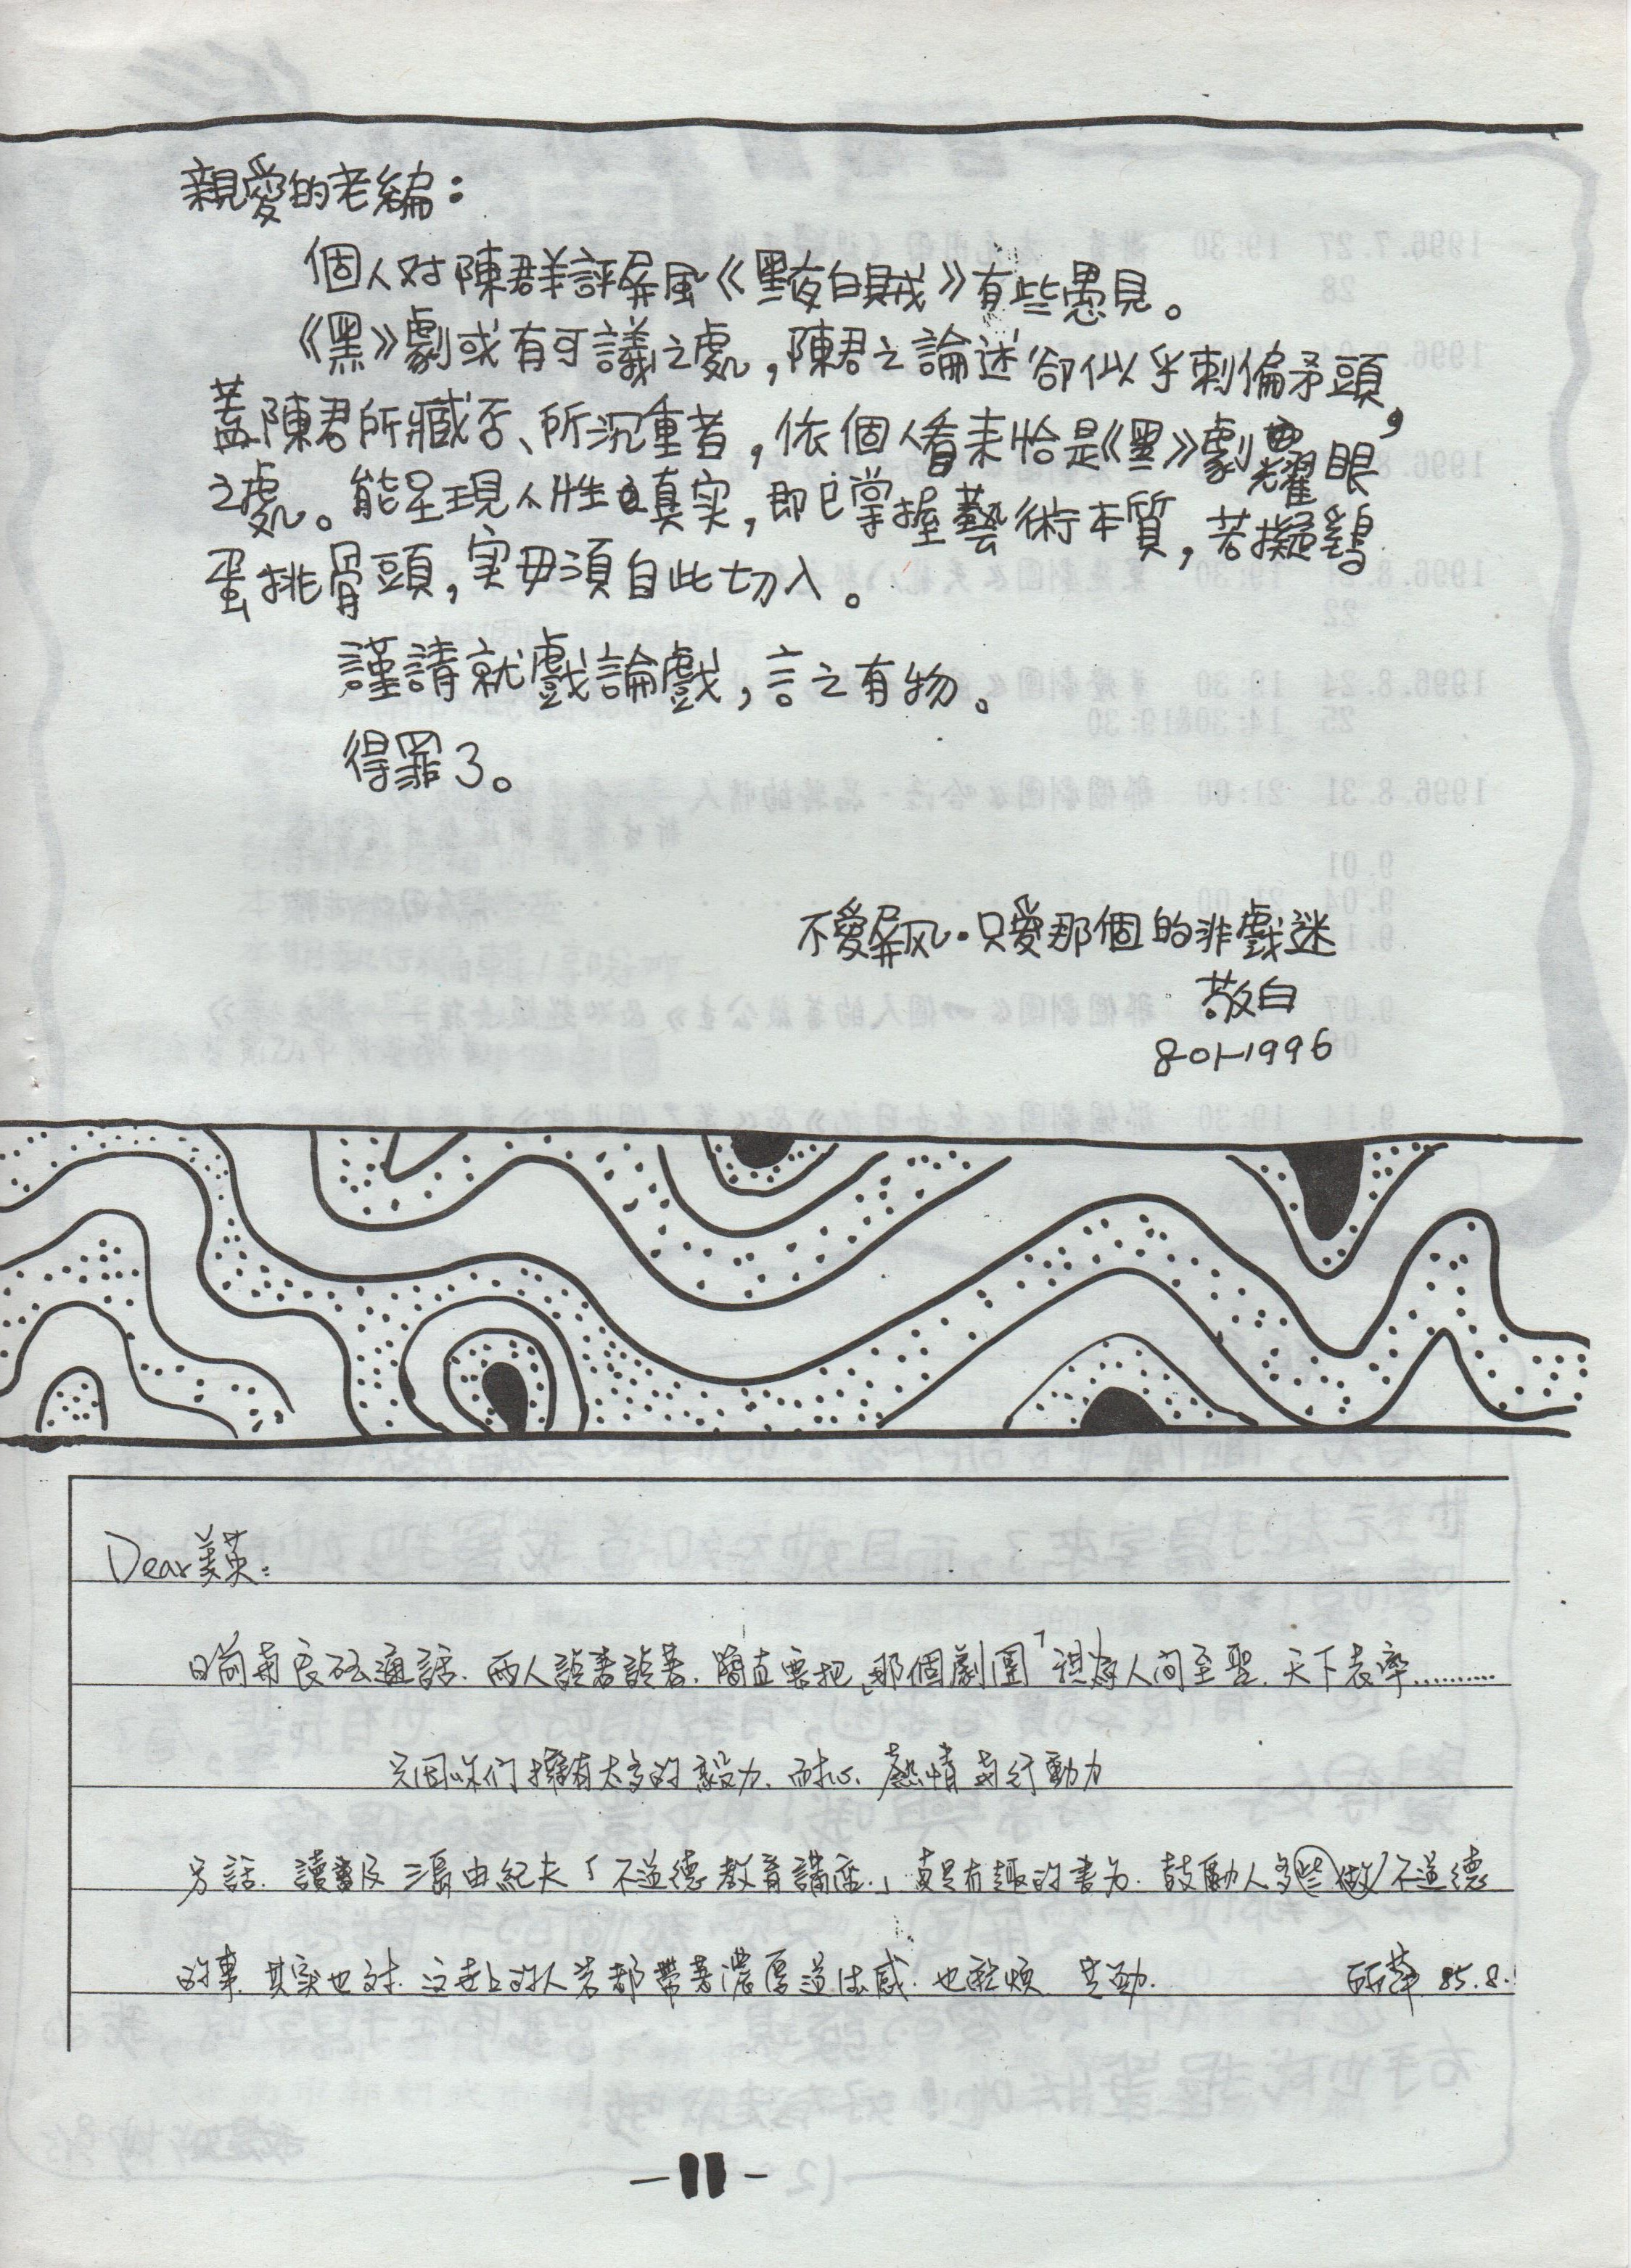 親愛的老編：
個人对陳群評屏風《黑夜白賊》有些愚見。
《黑》劇或有可議之處，陳君之論述卻似乎刺偏矛頭，
蓋陳君所臧否、所沉重者，依個人看来恰是《黑》劇最耀眼
之處。能呈現人性真实，即已掌握藝術本質，若擬鷄
蛋挑骨頭，实毋須自此切入。
謹請就戲論戲，言之有物。
得罪了。
不愛屏风·只愛那個的非戲迷
敬白
8-01-1996
Dear美英：
日前與良 通話．兩人談著談著．簡直要把「那個劇團」 人间至聖．天下表率..........
只因你们擁有太多的毅力．耐心．熱情與行動力
另話．讀 及三島由紀夫「不道德教育講座」真是有趣的書 ．鼓動人多些做不道德
的事．其实也对．这世上的人若都帶著濃厚道 感．也 煩．
 萍 85.8.
-11-